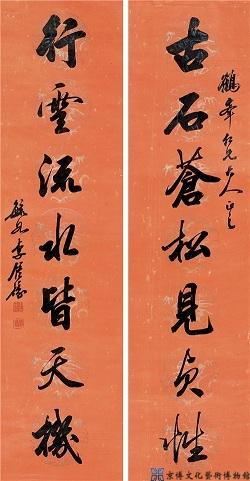 鶴年仁兄大人正之
古石蒼松見貞性
行雲流水皆天機
京博文化藝術博物館